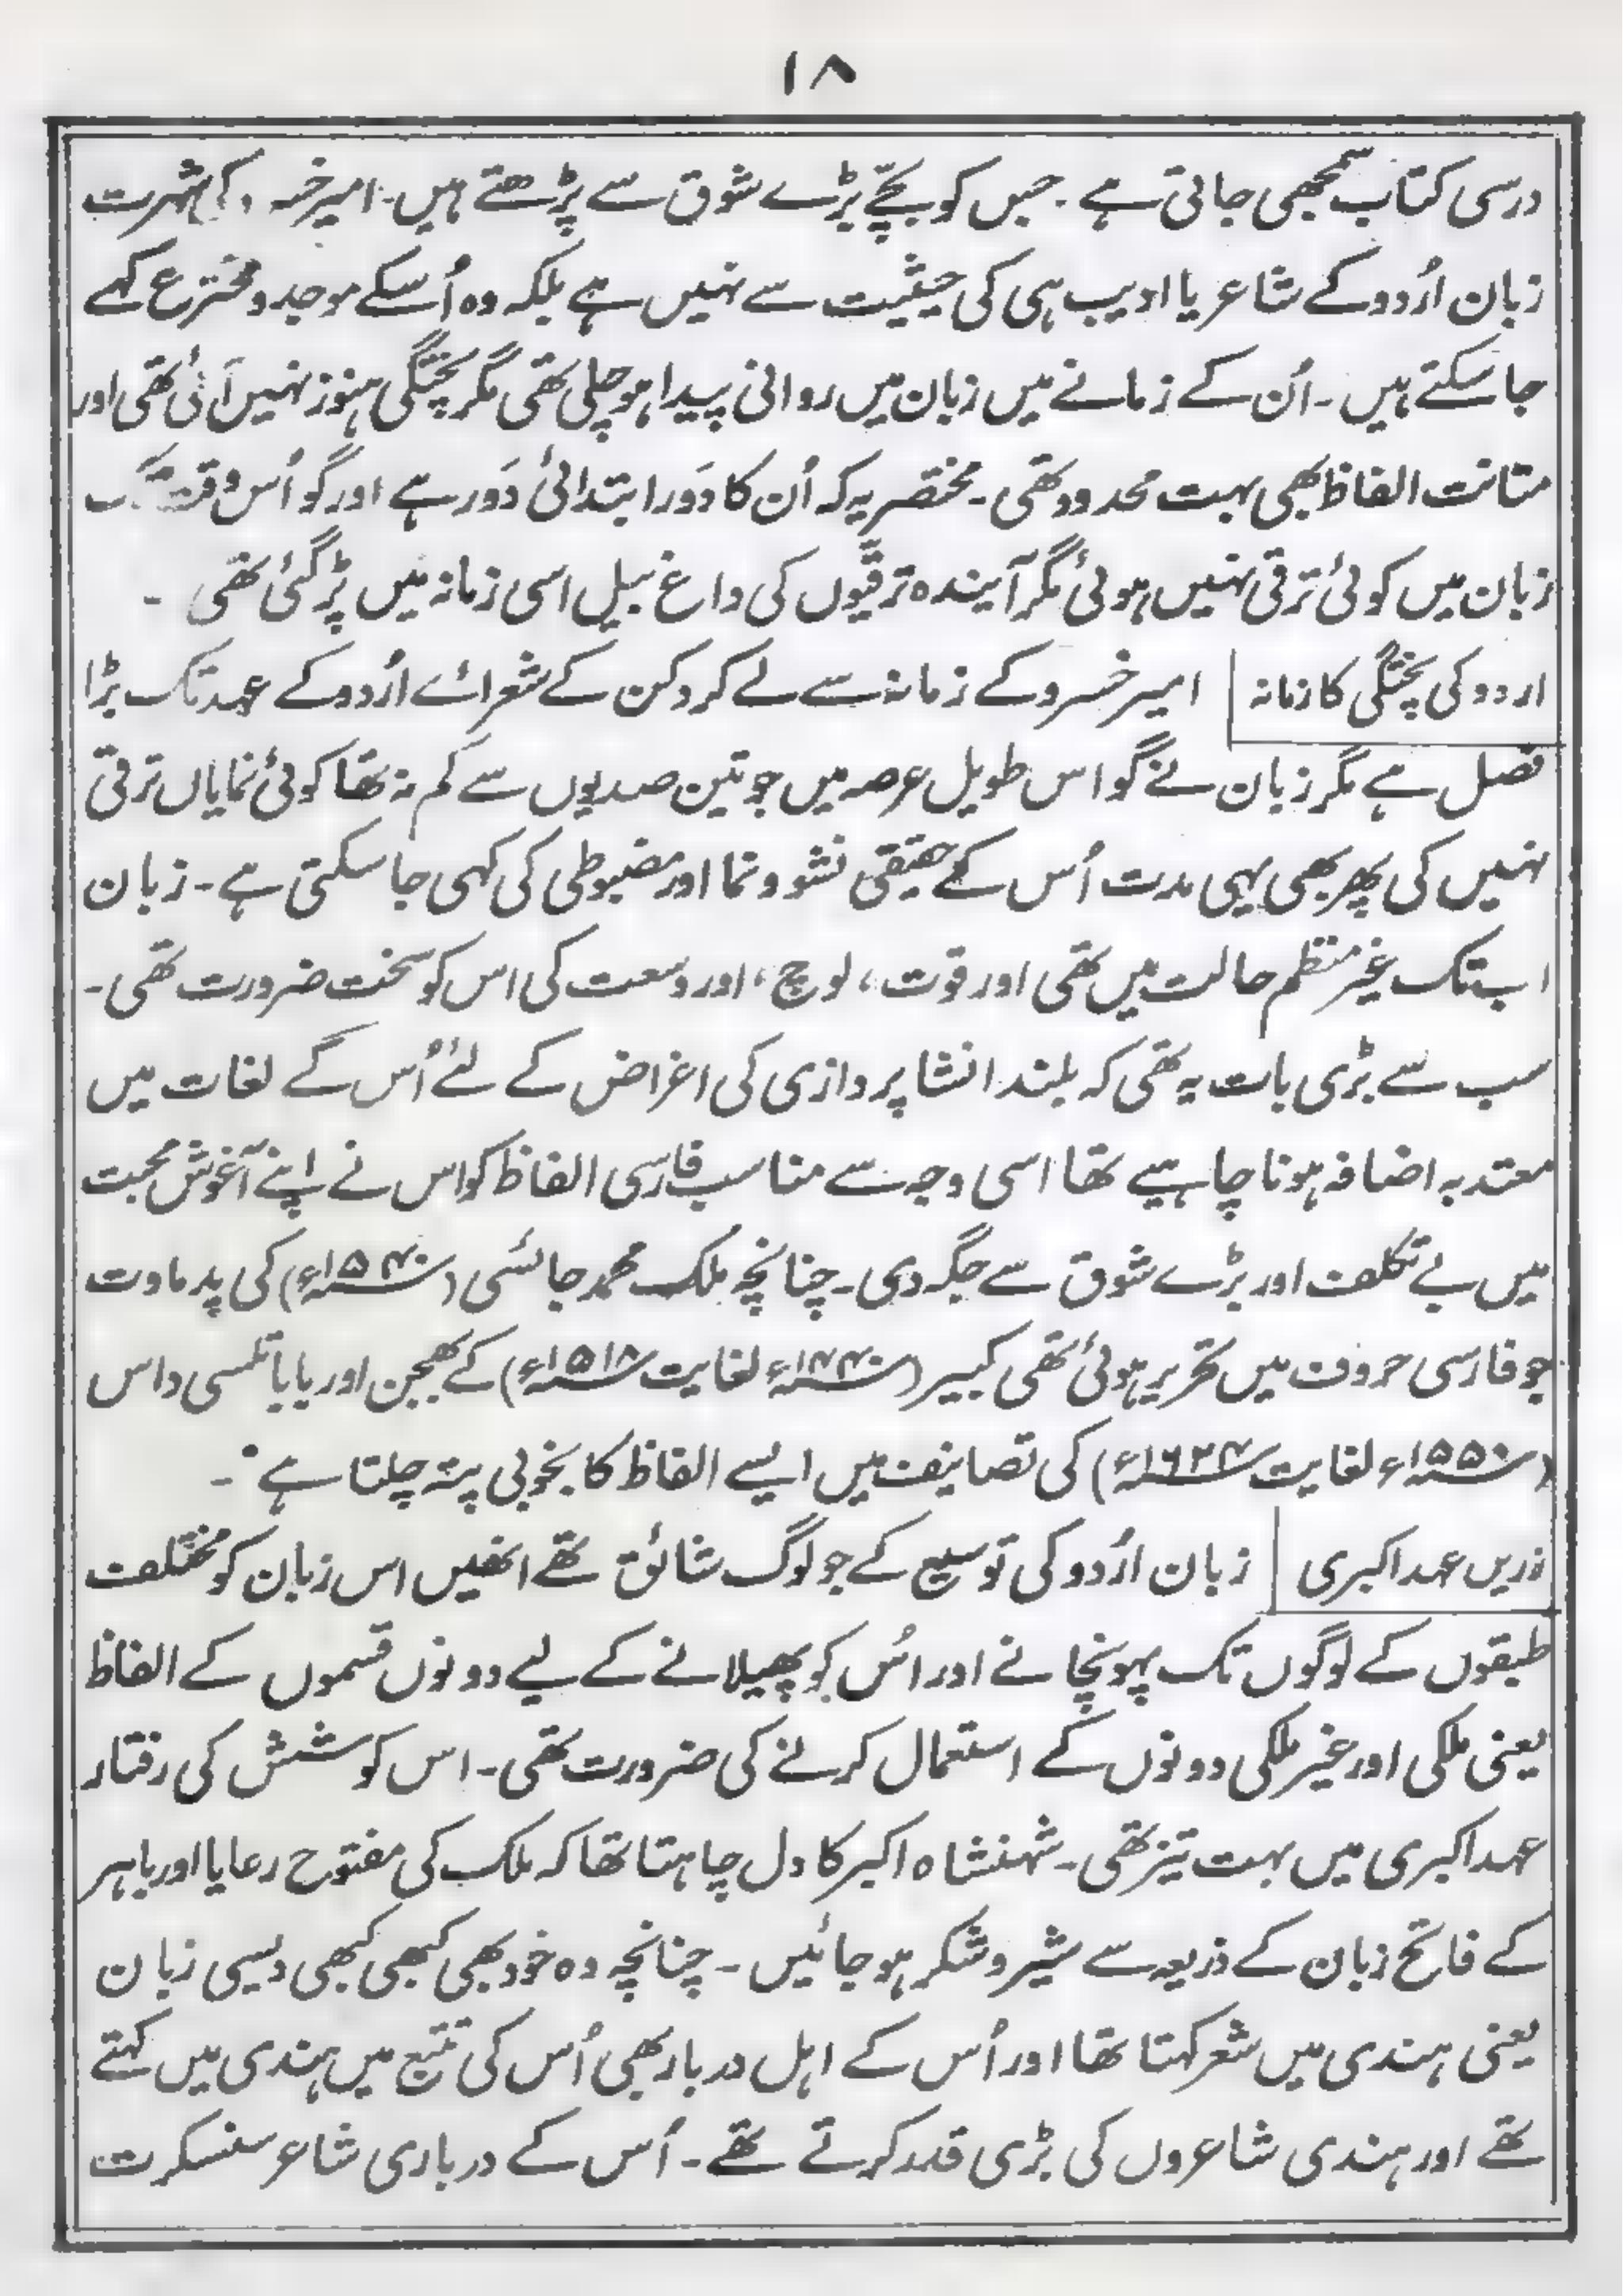 ۱۸
درسی کتاب سمجھی جاتی ہے ۔ جس کو بچّے بڑے شوق سے پڑھتے ہیں۔ امیر کی شہرت
زبان اُردو کے شاعر یا ادیب ہی کی حیثیت سے نہیں ہے بلکہ وہ اُسکے موجد و مخترع کہے
جا سکتے ہیں ۔ اُن کے زمانے میں زبان میں روانی پیدا ہو چلی تھی مگر پختگی ہنوز نہیں آئی تھی اور
متانت الفاظ بھی بہت محدود تھی ۔ مختصر یہ کہ اُن کا دَور ابتدائی دَور ہے اور گو اُس وقت
زبان میں کوئی ترقی نہیں ہوئی مگر آیندہ ترقیّوں کی داغ بیل اسی زمانہ میں پڑ گئی تھی ۔
اردو کی پختگی کا زمانہ | امیر خسرو کے زمانہ سے لے کر دکن کے شعرائے اُردو کے عہد تک بڑا
فصل ہے مگر زبان نے گو اس طویل عرصہ میں جو تین صدیوں سے کم نہ تھا کوئی نمایاں ترقی
نہیں کی پھر بھی یہی مدت اُس کے حقیقی نشو و نما اور مضبوطی کی کہی جا سکتی ہے ۔ زبان
ابتک غیر منظم حالت میں تھی اور قوت ، لوچ ، اور وسعت کی اس کو سخت ضرورت تھی ۔
سب سے بڑی بات یہ تھی کہ بلند انشا پردازی کی اغراض کے لئے اُس کے لغات میں
معتد بہ اضافہ ہونا چاہیے تھا اسی وجہ سے مناسب فارسی الفاظ کو اس نے اپنے آغوش محبت
میں بے تکلف اور بڑے شوق سے جگہ دی ۔ چنانچہ ملک محمد جائسی (سنہ ۱۵۴۰ء) کی پدماوت
جو فارسی حروف میں تحریر ہوئی تھی کبیر (سنہ ۱۴۴۰ء لغایت سنہ ۱۵۱۸ء) کے بھجن اور بابا تلسی داس
(سنہ ۱۵۵۰ء لغایت سنہ ۱۶۲۴ء) کی تصانیف میں ایسے الفاظ کا بخوبی پتہ چلتا ہے ۔
زریں عہد اکبری | زبان اُردو کی توسیع کے جو لوگ شائق تھے انھیں اس زبان کو مختلف
طبقوں کے لوگوں تک پہونچانے اور اُس کو پھیلانے کے لیے دونوں قسموں کے الفاظ
یعنی ملکی اور غیر ملکی دونوں کے استعمال کرنے کی ضرورت تھی ۔ اس کوشش کی رفتار
عہد اکبری میں بہت تیز تھی ۔ شہنشاہ اکبر کا دل چاہتا تھا کہ ملک کی مفتوح رعایا اور باہر
کے فاتح زبان کے ذریعہ سے شیر و شکر ہو جائیں ۔ چنانچہ وہ خود بھی کبھی کبھی دیسی زبان
یعنی ہندی میں شعر کہتا تھا اور اُس کے اہل دربار بھی اُس کی تتبع میں ہندی میں کہتے
تھے اور ہندی شاعروں کی بڑی قدر کرتے تھے ۔ اُس کے درباری شاعر سنسکرت